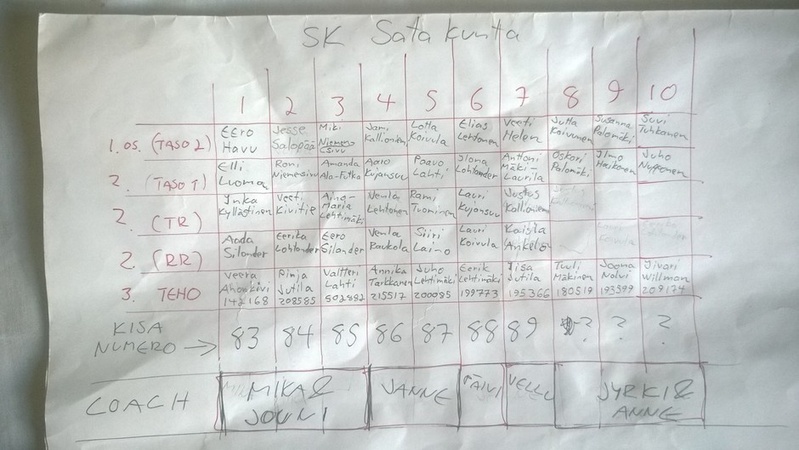 SK Satakunta
1 2 3 4 5 6 7 8 9 10
1. os. (TASO 2) Eero Jesse Miki Jami Lotta Elias Veeti Jutta Susanna Suvi
Havu Salopää Niemensivu Kallionen Koivula Lehtonen Helen Koivunen Palomäki Tuhkanen
2. (TASO 1) Elli Roni Amanda Aaro Paavo Ilona Anttoni Oskari Ilmo Juho
Luoma Niemensivu Ala-Fotka Kujansuu Lahti Lohlander Mäki-Laurila Palomäki Haikonen Nyppönen
2. (TR) Inka Veeti Aina-Maria Venla Rami Lauri Justus
Kyllästinen Kivitie Lehtimäki Lehtonen Tuominen Kujansuu Kallionen
2. (RR) Aada Eerika Eero Venla Siiri Lauri Kaisla
Silander Lohlander Silander Raukola Laimo Koivula Ankelo
3. TEHO Veera Pinja Valtteri Annika Juho Eerik Iisa Tuuli Joona Iivari
Ahonkivi Jutila Lahti Tarkkanen Lehtimäki Lehtimäki Jutila Mäkinen Nalvi Willman
142168 208585 502882 215517 200085 199773 195366 180519 193599 209174
KISA
NUMERO → 83 84 85 86 87 88 89 ? ? ?
COACH MIKA & JOUNI JANNE PÄIVI VELLU JYRKI & ANNE